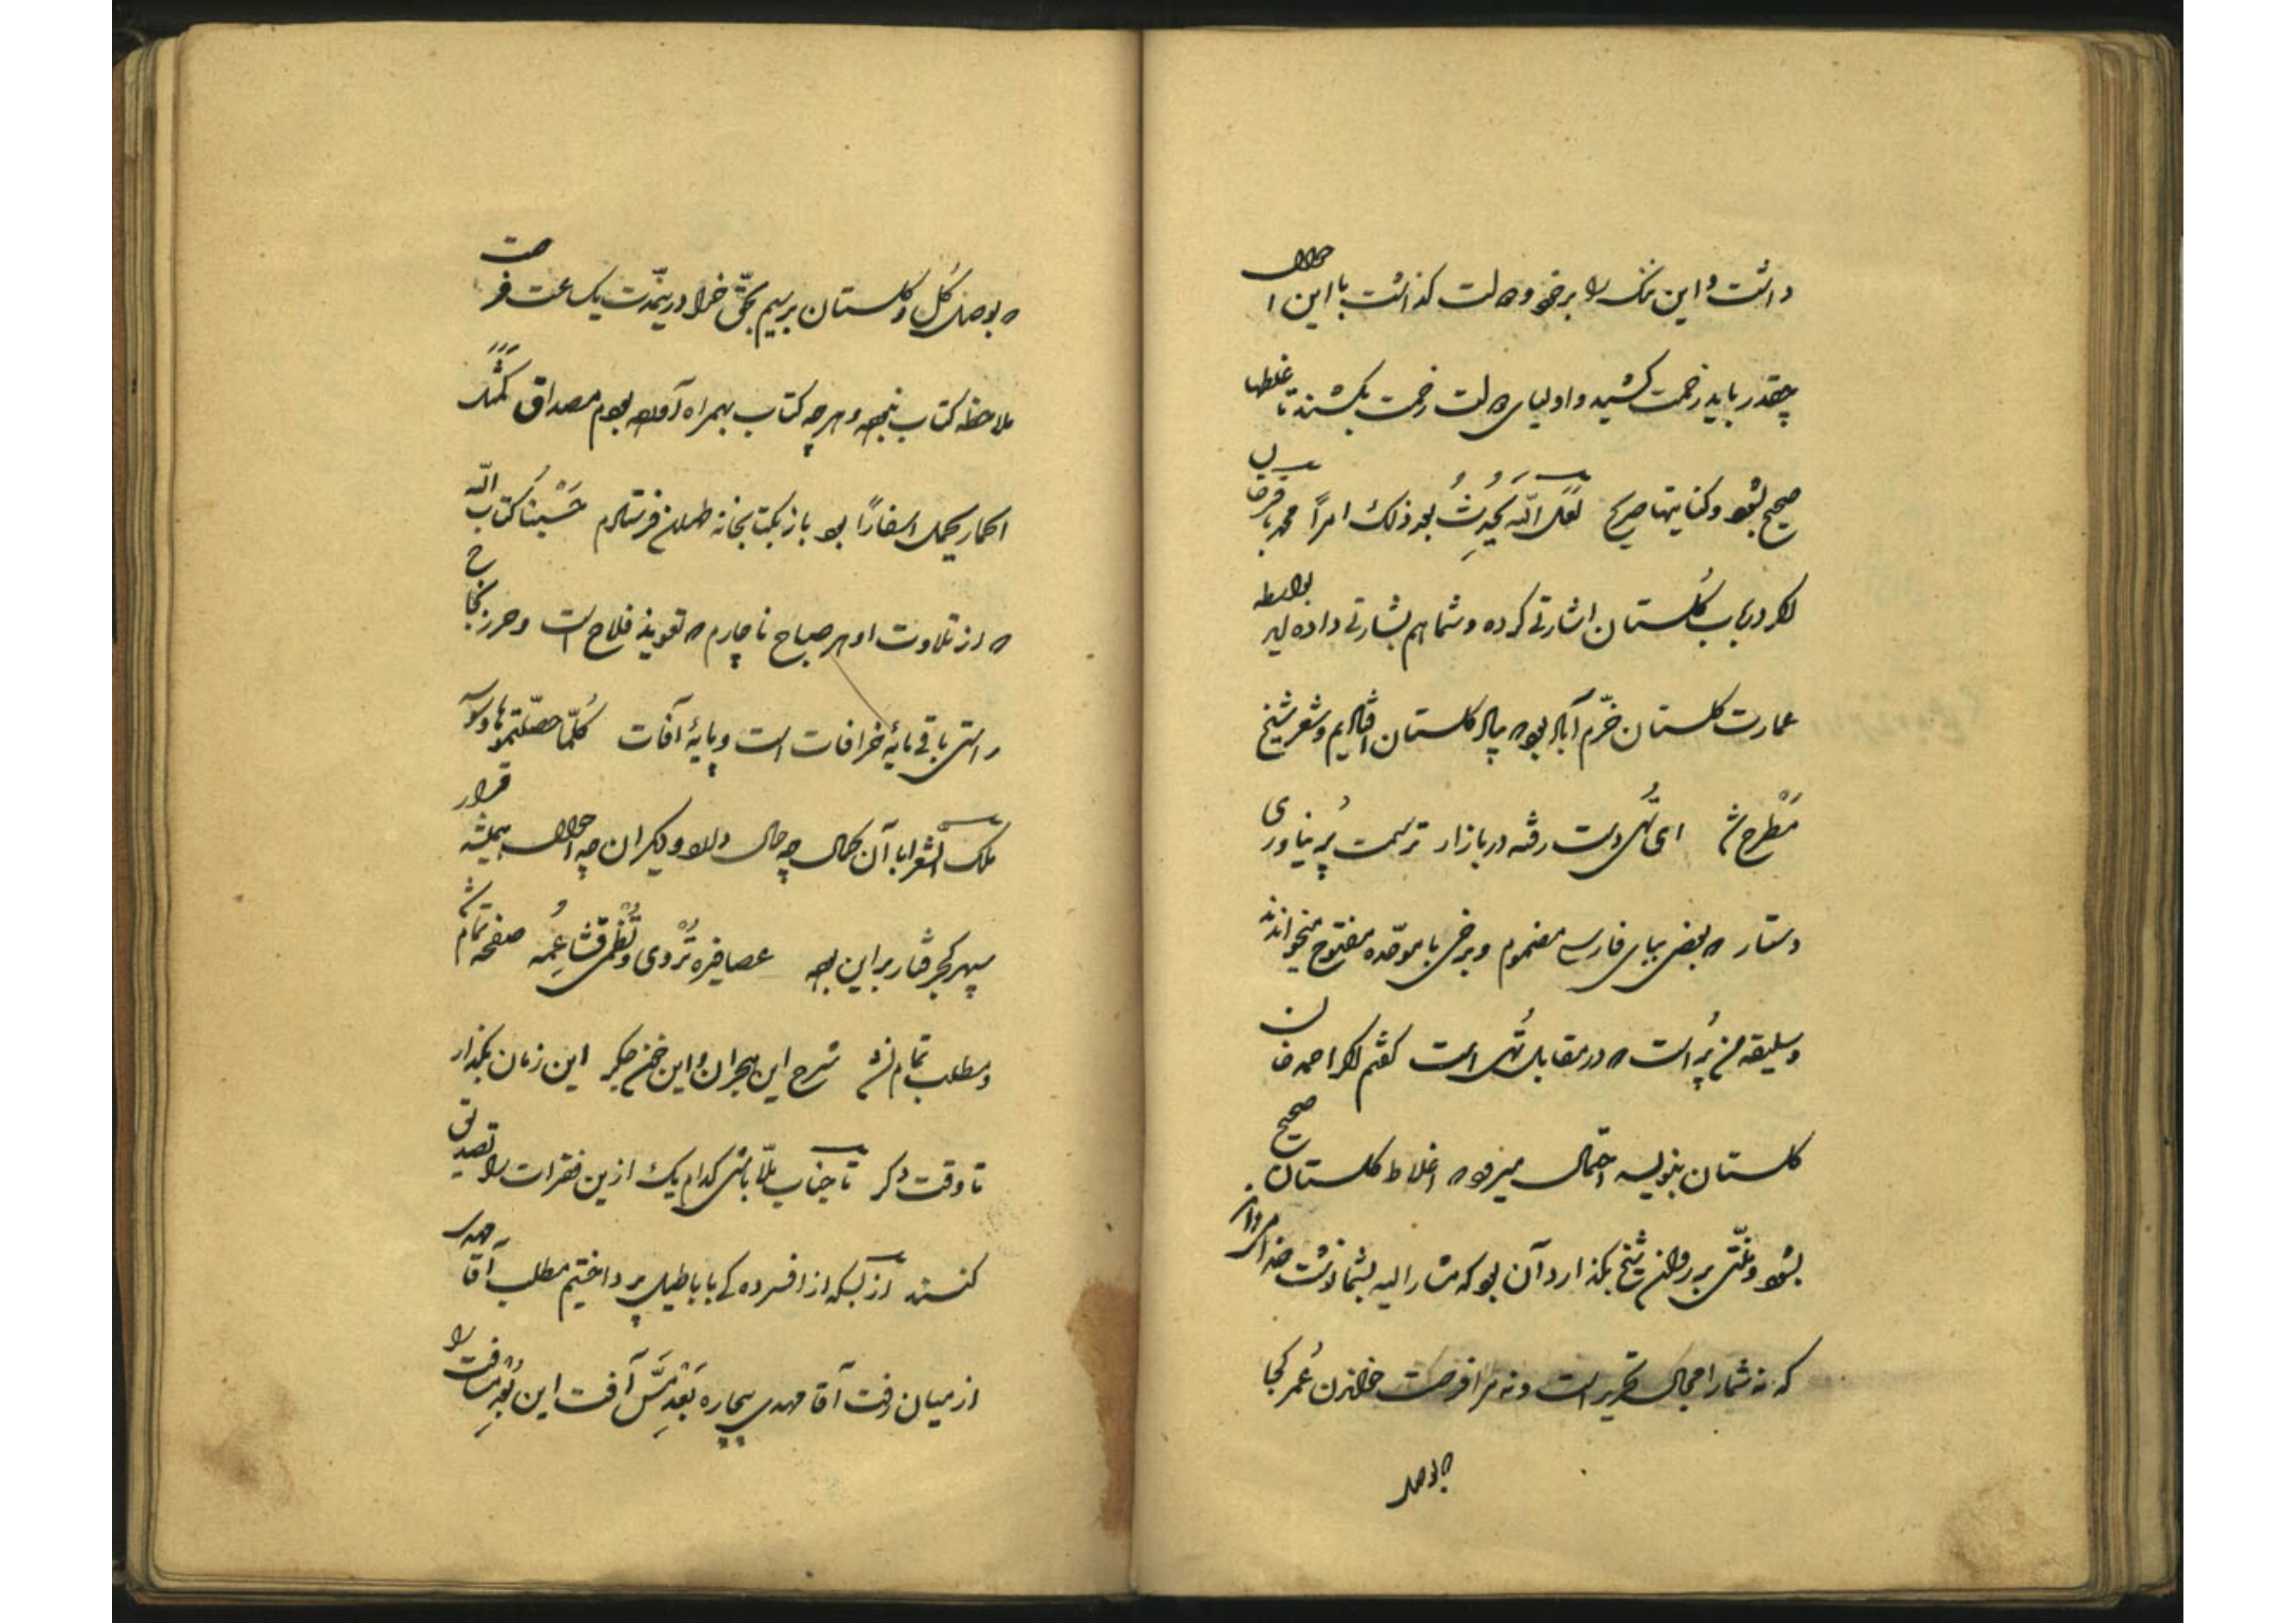 داشت و این ننگ را بر خود و دولت گذاشت با این احوال
چقدر باید زحمت کشید و اولیای دولت زحمت بکشند تا غلطها
صحیح بشود و کنایتها صریح لَعَلَّ اللّه یُحدِثُ بعد ذلک امراً محمد باقرخان
لله در باب گلستان اشارتی کرده و شما هم بشارتی داده اید بواسطه
عمارت گلستان خرّم آباد بود که بیاد گلستان افتادیم و شعر شیخ
مَطْرح شد ای تُهی دست رفته در بازار ترسمت پُر نیاوری
دستار که بعضی ببای فارسی مضموم و برخی با موحّده مفتوح میخوانند
و سلیقه من پُر است که در مقابل تُهی است گفتم لله احمد خان
گلستان بنویسد احتمال میرود که اغلاط گلستان صحیح
بشود و منّتی بر روان شیخ بگذارد آن بود که مشارالیه بشما نوشت
که نه شما را مجال تحریر است و نه مرا فرصت خواندن عُمر کجا
که بوصل
که بوصل گُل و گلستان برسیم بحقّ خدا درینمدّت یکساعت فرصت
ملاحظه کتاب نبود و هر چه کتاب بهمراه آورده بودم مصداق کمثل
الحمار یحمل اسفاراً بود باز بکتابخانه طهران فرستادم حَسْبُنا کتاب اللّه
که از تلاوت او هر صباح ناچارم که تعویذ فلاح است و حرز نجاح
راستی باقی مایهٔ خرافات است و پایهٔ آفات کُلّما حصّلتموها وسوسه
ملک الشعرا با آن کمال چه حال دارد و دیگران چه احوال همیشه قرار
سپهر کجرفتار بر این بوده عصافره تُرْدی و تُظمی قشاعِمُه صفحه تمام شد
و مطلب تمام نشد شرح این هجران و این خون جگر این زمان بگذار
تا وقت دگر تا جناب ملّا باشی کدام یک از این فقرات را تصدیق
کنند از بسکه از افسردگی باباطیل پرداختیم مطلب آقا مهدی
از میان رفت آقا مهدی بیچاره بَعْدِ مَسِّ آفت این بُعْدِ مسافت را